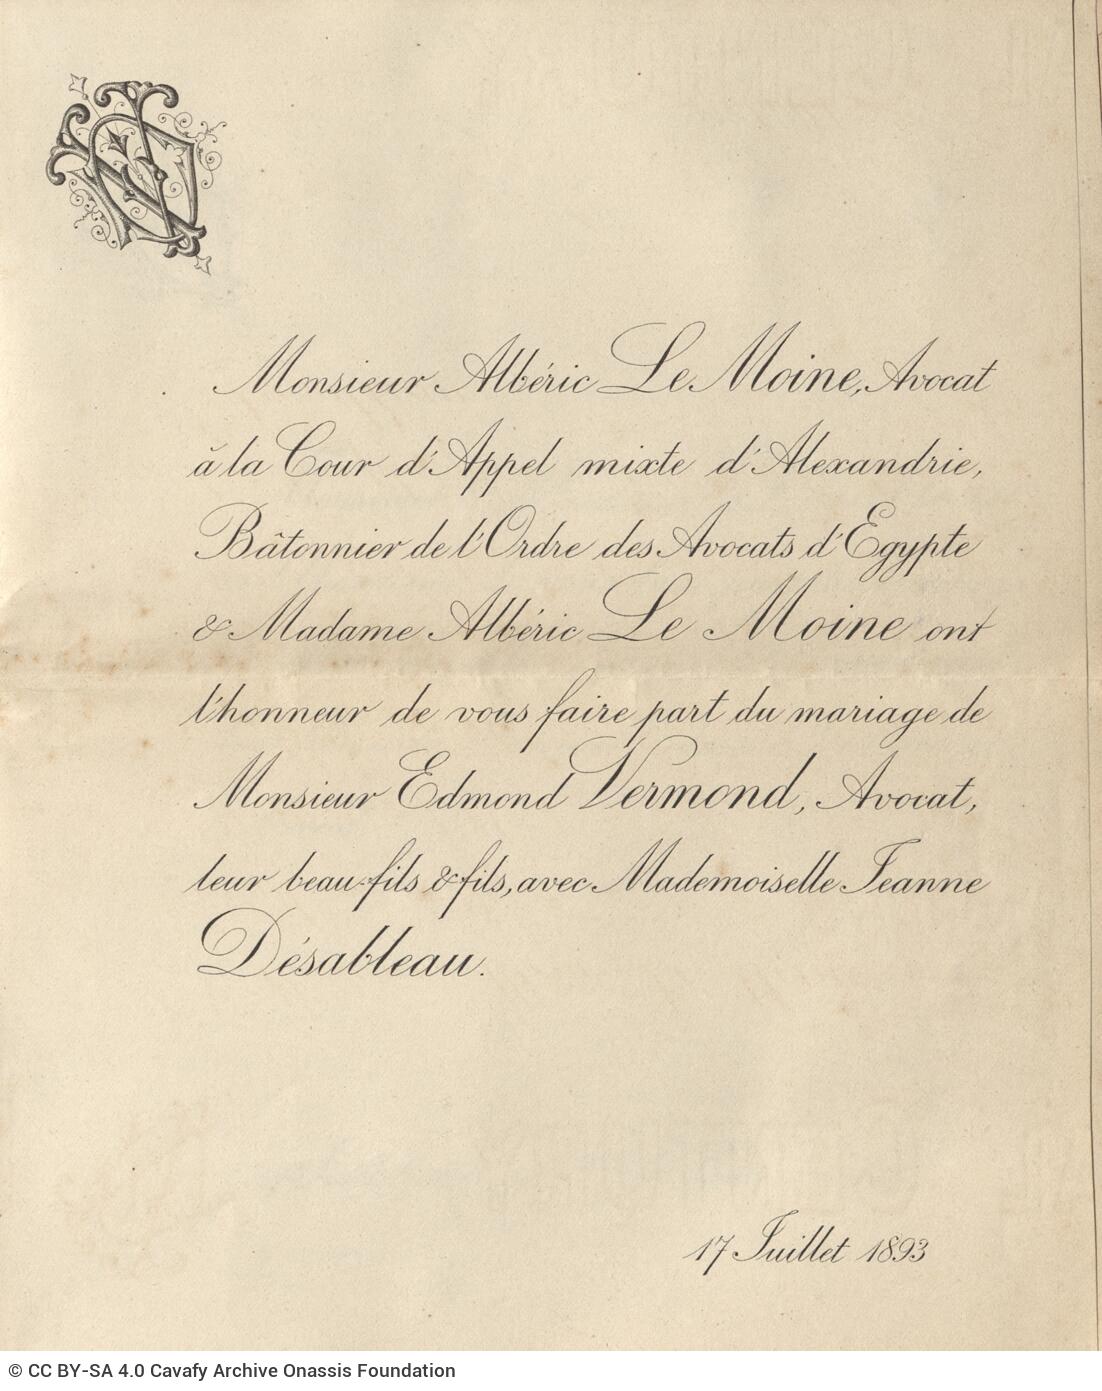 Monsieur Albéric Le Moine, Avocat
à la Cour d'Appel mixte d'Alexandrie,
Bâtonnier de l'Ordre des Avocats d'Egypte
& Madame Albéric Le Moine ont
l'honneur de vous faire part du mariage de
Monsieur Edmond Vermond, Avocat,
leur beau-fils & fils, avec Mademoiselle Jeanne
Désableau.
17 Juillet 1893
© CC BY-SA 4.0 Cavafy Archive Onassis Foundation